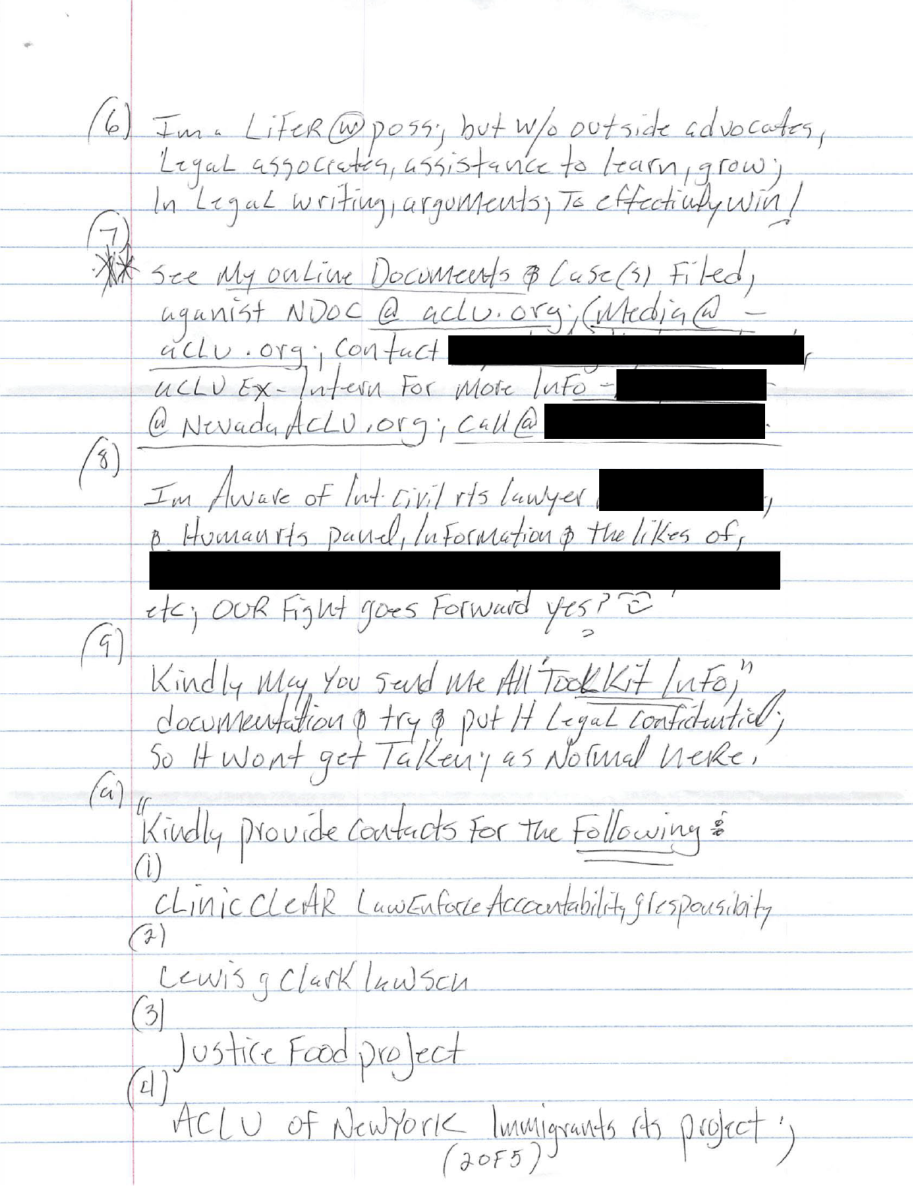 (6) I'm a LIFER @ w poss; but w/o outside advocates,
Legal associates, assistance to learn, grow;
In Legal writing, arguments; To effectively win!
(7)
** See My online Documents & Case(s) Filed,
aganist NDOC @ aclu.org; (Media@ -
aclu.org; Contact
ACLU Ex-Intern For More Info -
@ NevadaACLU.org; Call @
(8)
Im Aware of Int. civil rts lawyer
& Human rts panel, Information & the likes of,
etc; OUR Fight goes Forward yes?
(9)
Kindly May You Send Me All "Tool Kit Info,"
documentation & try & put It Legal Confidential;
So It Wont get Taken; as Normal Here.
(a)
"Kindly provide Contacts For The Following:
(1)
CLinic CleAR Law Enforce Accountability & responsibity
(2)
Lewis & Clark lawsch
(3)
Justice Food project
(4)
ACLU of NewYork Immigrants rts project;
(2OF5)